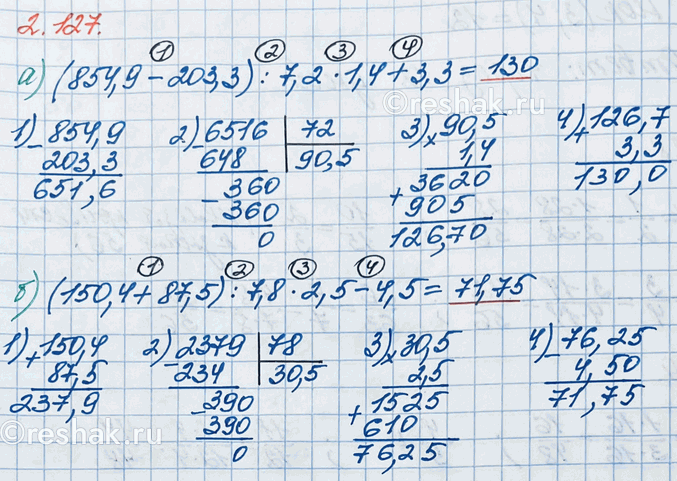 2.127.
① ② ③ ④
а) (854,9 − 203,3) : 7,2 · 1,4 + 3,3 = 130
1) − 854,9 2) − 6516 | 72 3) × 90,5 4) + 126,7
203,3 648 90,5 1,4 3,3
651,6 − 360 + 3620 130,0
360 905
0 126,70
① ② ③ ④
б) (150,4 + 87,5) : 7,8 · 2,5 − 4,5 = 71,75
1) + 150,4 2) − 2379 | 78 3) × 30,5 4) − 76,25
87,5 234 30,5 2,5 4,50
237,9 − 390 + 1525 71,75
390 610
0 76,25
© reshak.ru